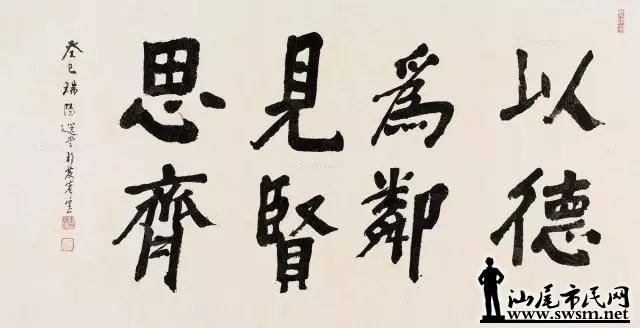 以德
為鄰
見賢
思齊
癸巳端陽選堂
汕尾市民网
www.swsm.net